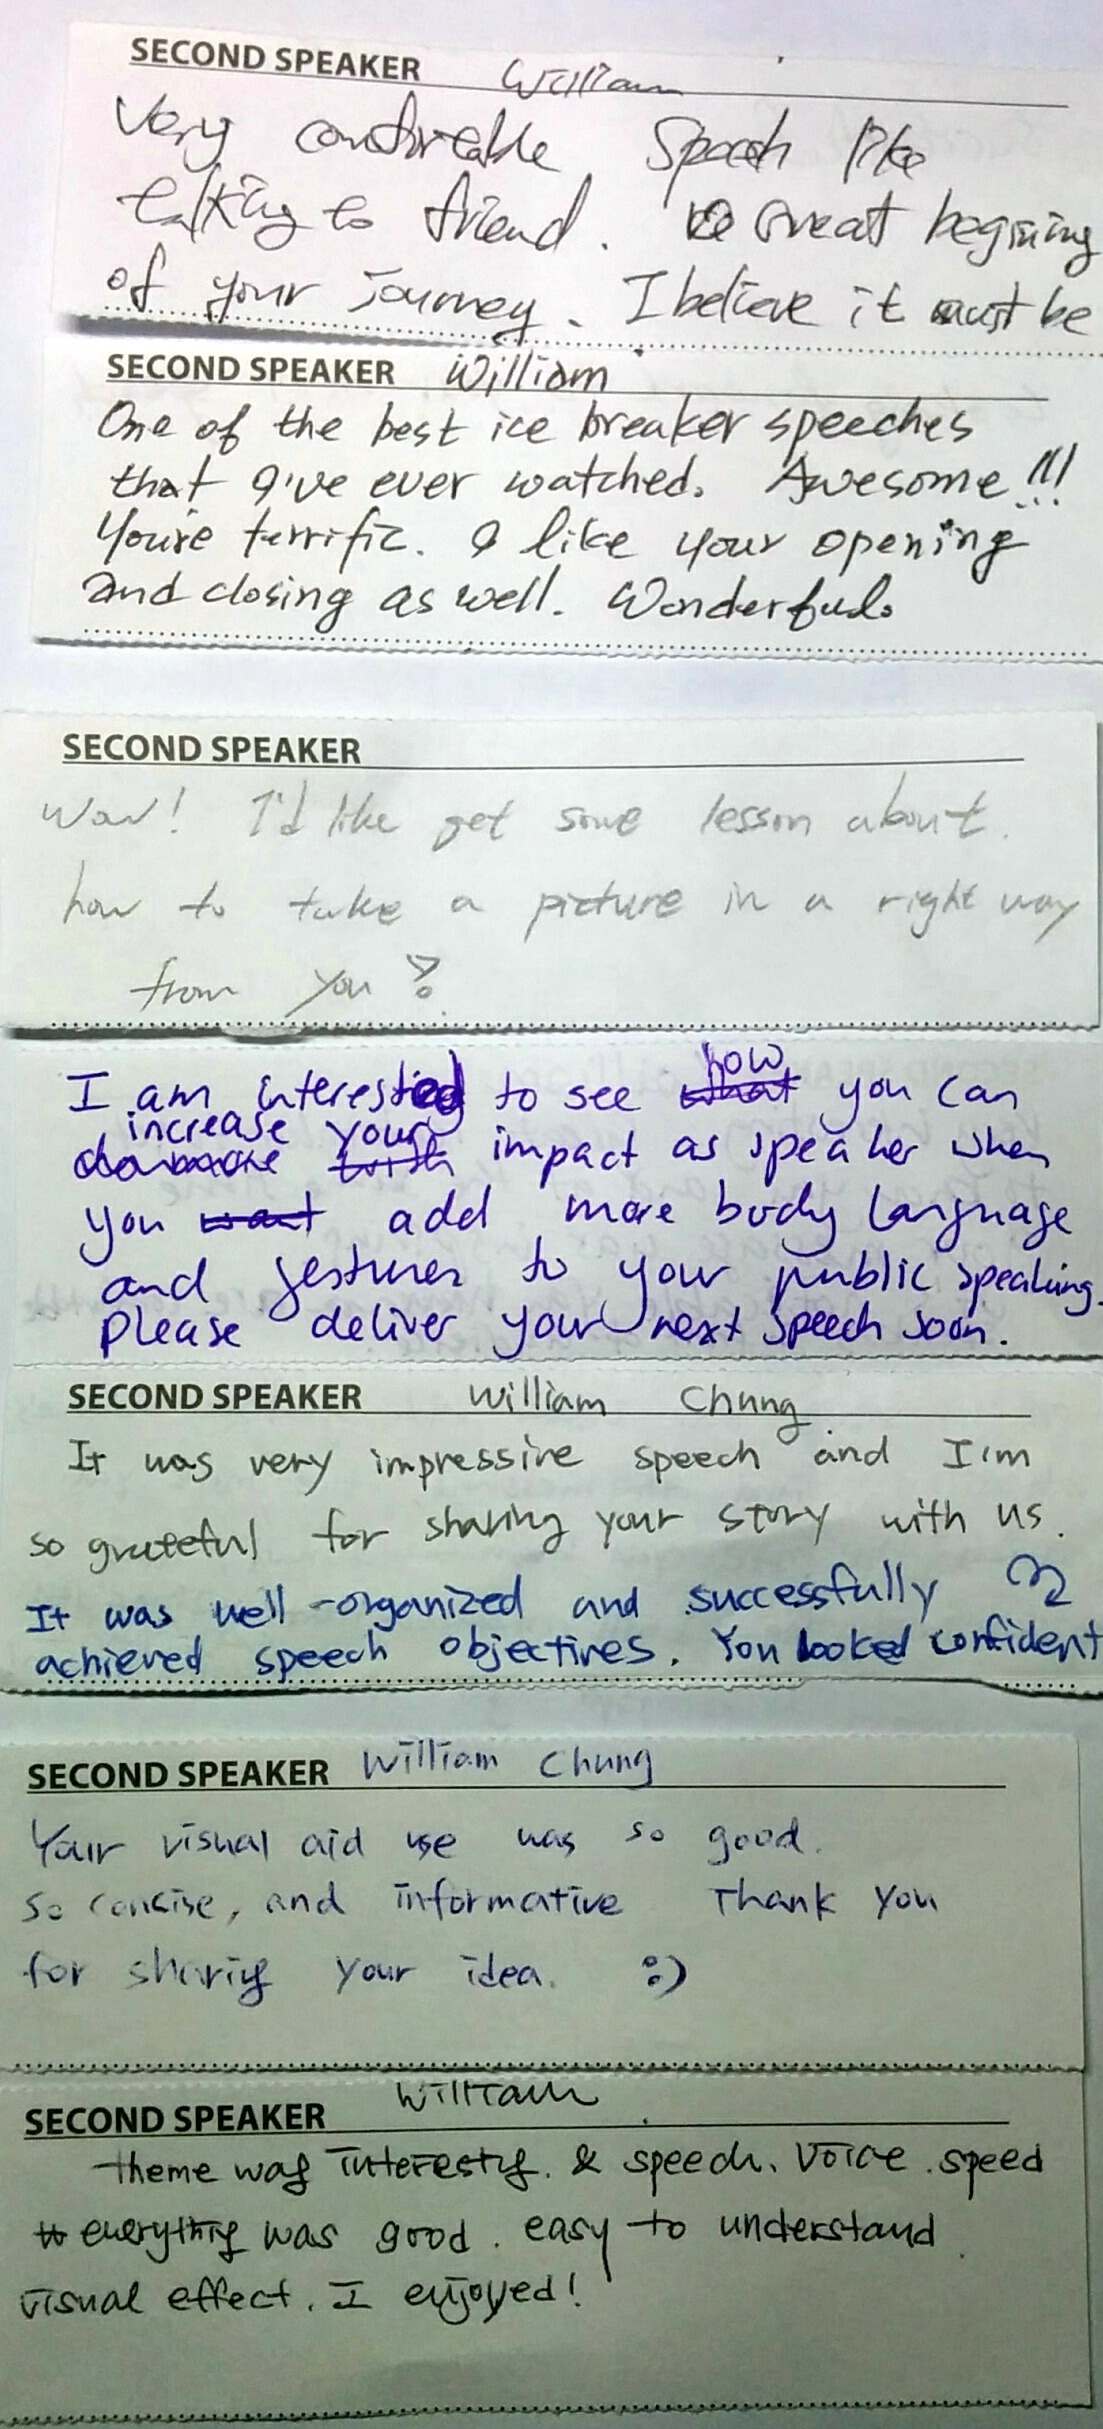 SECOND SPEAKER William
Very comforeable Speech like
talking to friend. Great begining
of your Journey. I believe it must be
SECOND SPEAKER William
One of the best ice breaker speeches
that I've ever watched. Awesome!!!
You're terrific. I like your opening
and closing as well. Wonderful.
SECOND SPEAKER
Wow! I'd like get some lesson about.
how to take a picture in a right way
from you?
how
I am interested to see what you can
increase your
impact as speaker when
you want add more body language
and gestures to your public speaking.
Please deliver your next speech soon.
SECOND SPEAKER William Chung
It was very impressive speech and I'm
so grateful for sharing your story with us.
It was well-organized and successfully
achieved speech objectives. You looked confident
SECOND SPEAKER William Chung
Your visual aid use was so good.
So concise, and informative Thank you
for sharing your idea. :)
SECOND SPEAKER William
theme was interesting. & speech. Voice. speed
everything was good. easy to understand.
visual effect. I enjoyed!